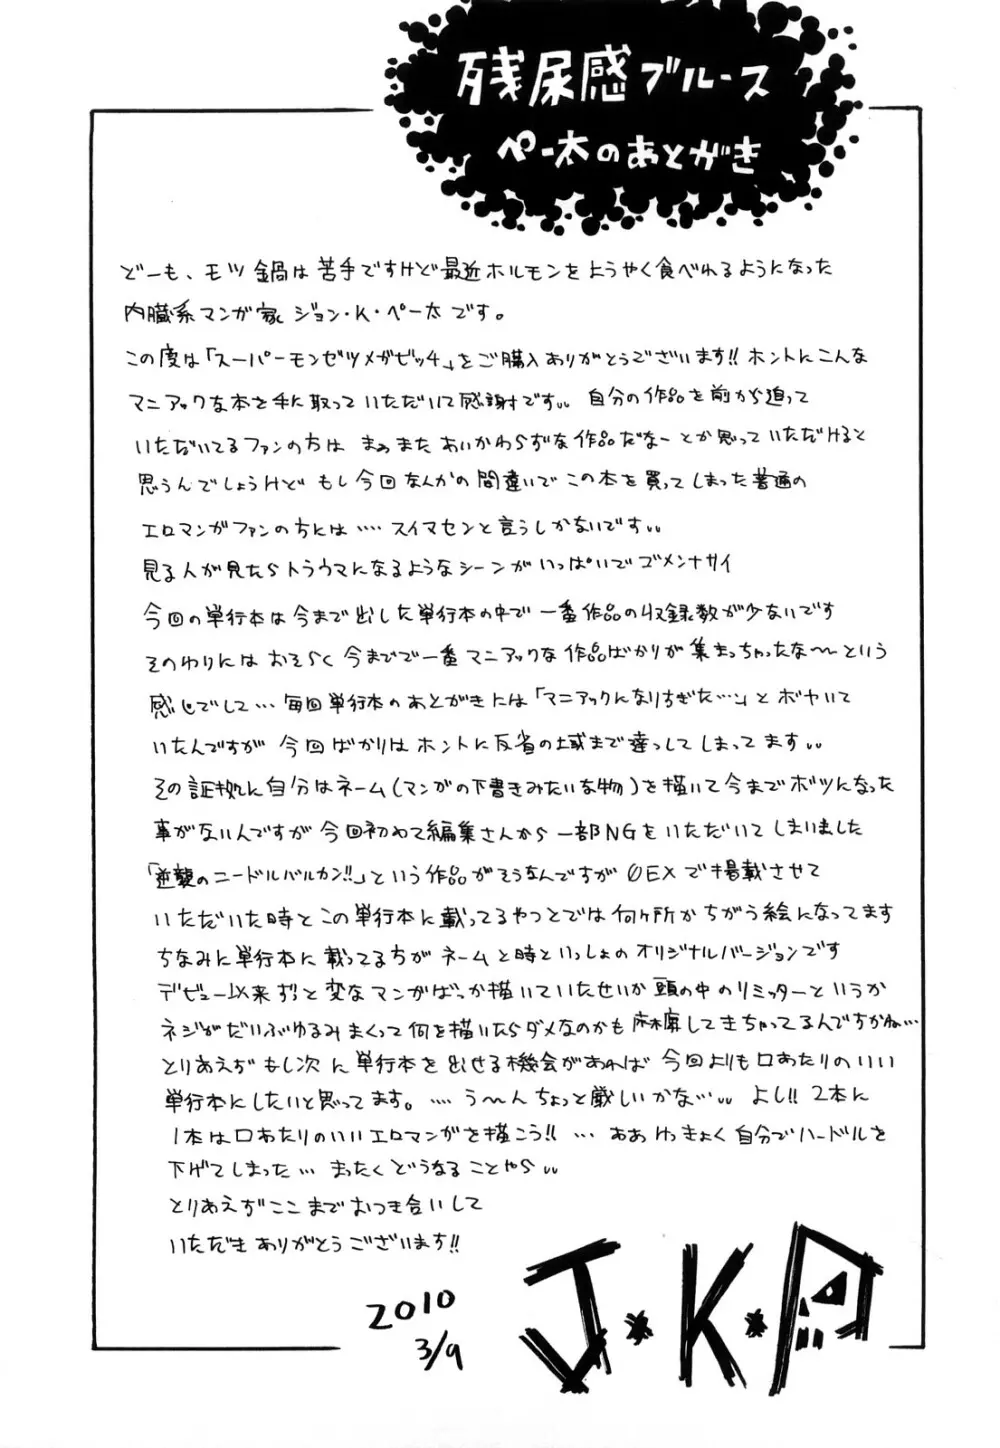 残尿感ブルース
ペー太のあとがき
どーも、モツ鍋は苦手ですけど最近ホルモンをようやく食べれるようになった
内臓系マンガ家 ジョン・K・ペー太です。
この度は「スーパーモンゼツメガビッチ」をご購入ありがとうございます!! ホントにこんな
マニアックな本を手に取っていただいて感謝です。。 自分の作品を前から追って
いただいてるファンの方は まぁまたあいかわらずな作品だなーとか思っていただけると
思うんでしょうけど もし今回なんかの間違いでこの本を買ってしまった普通の
エロマンガファンの方には‥‥ スイマセンと言うしかないです。。
見る人が見たらトラウマになるようなシーンがいっぱいでゴメンナサイ
今回の単行本は今まで出した単行本の中で一番作品の収録数が少ないです
そのわりにはおそらく今までで一番マニアックな作品ばかりが集まっちゃったな〜という
感じでして… 毎回単行本のあとがきには「マニアックになりすぎた…」とボヤいて
いたんですが 今回ばかりはホントに反省の域まで達っしてしまってます。。
その証拠に自分はネーム(マンガの下書きみたいな物)を描いて今までボツになった
事がないんですが今回初めて編集さんから一部NGをいただいてしまいました
「逆襲のニードルバルカン!!」という作品がそうなんですが 0EXで掲載させて
いただいた時とこの単行本に載ってるやつとでは何ヶ所かちがう絵になってます
ちなみに単行本に載ってる方がネームと時といっしょのオリジナルバージョンです
デビュー以来ずっと変なマンガばっか描いていたせいか頭の中のリミッターというか
ネジがだいぶゆるみまくって何を描いたらダメなのかも麻痺してきちゃってるんですかね…
とりあえずもし次に単行本を出せる機会があれば 今回よりも口あたりのいい
単行本にしたいと思ってます。‥‥ う〜んちょっと厳しいかな…。。 よし!! 2本に
1本は口あたりのいいエロマンガを描こう!! … ああけっきょく自分でハードルを
下げてしまった… まったくどうなることやら。。
とりあえずここまでおつき合いして
いただきありがとうございます!!
2010
3/9
J*K*P